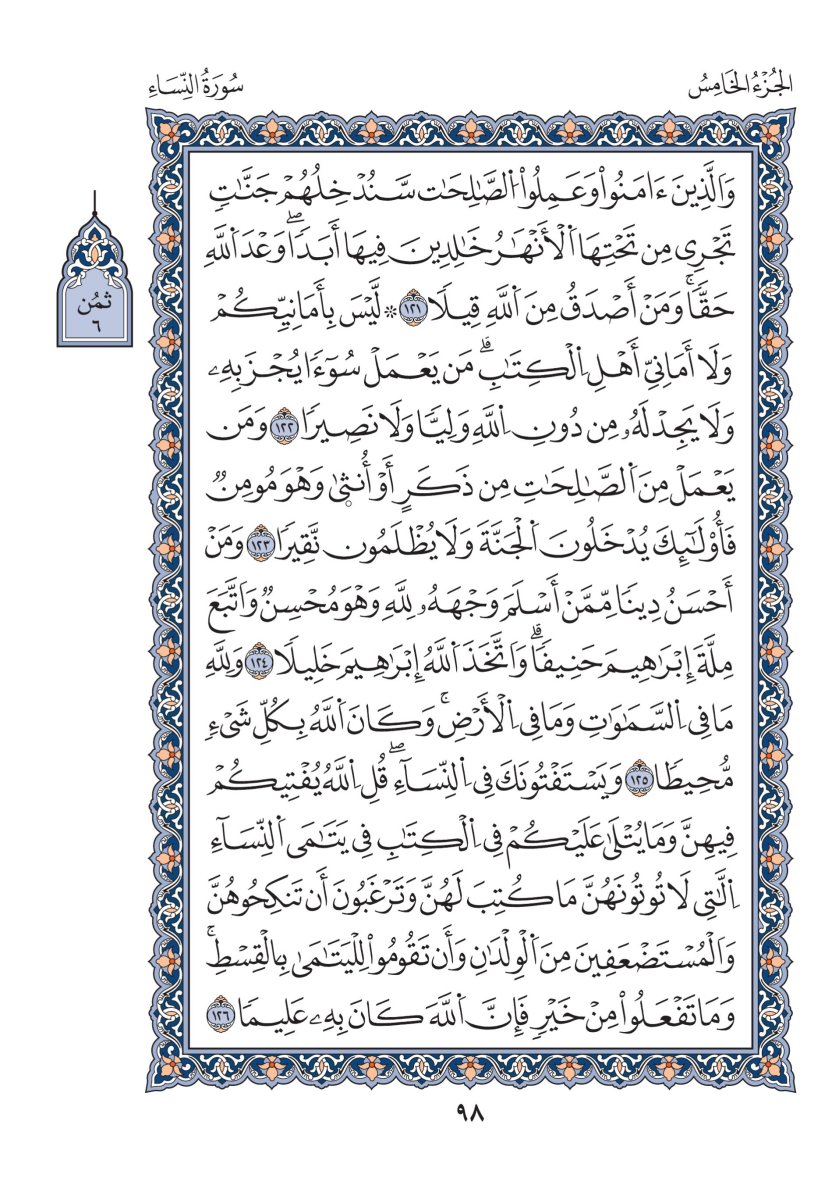 الجُزْءُ الخَامِسُ
سُورَةُ النِّسَاءِ
وَالَّذِينَ ءَامَنُواْ وَعَمِلُواْ اُ۬لصَّٰلِحَٰت سَّنُدْخِلُهُمْ جَنَّٰتٖ
تَجْرِے مِن تَحْتِهَا اَ۬لْأَنْهَٰرُ خَٰلِدِينَ فِيهَا أَبَداٗۖ وَعْدَ اَ۬للَّهِ
حَقّاٗۚ وَمَنْ أَصْدَقُ مِنَ اَ۬للَّهِ قِيلاٗ ١٢١ ۞ لَّيْسَ بِأَمَانِيِّكُمْ
وَلَا أَمَانِيِّ أَهْلِ اِ۬لْكِتَٰبِۗ مَن يَعْمَلْ سُوٓءاٗ يُجْزَ بِهِۦ
وَلَا يَجِدْ لَهُۥ مِن دُونِ اِ۬للَّهِ وَلِيّاٗ وَلَا نَصِيراٗ ١٢٢ وَمَن
يَعْمَلْ مِنَ اَ۬لصَّٰلِحَٰتِ مِن ذَكَرٍ أَوْ أُنث۪ىٰ وَهْوَ مُومِنٞ
فَأُوْلَٰٓئِكَ يُدْخَلُونَ اَ۬لْجَنَّةَ وَلَا يُظْلَمُون نَّقِيراٗ ١٢٣ وَمَنْ
أَحْسَنُ دِيناٗ مِّمَّنْ أَسْلَمَ وَجْهَهُۥ لِلهِ وَهْوَ مُحْسِنٞ وَاتَّبَعَ
مِلَّةَ إِبْرَٰهِيمَ حَنِيفاٗۗ وَاتَّخَذَ اَ۬للَّهُ إِبْرَٰهِيمَ خَلِيلاٗ ١٢٤ وَلِلهِ
مَا فِے اِ۬لسَّمَٰوَٰتِ وَمَا فِے اِ۬لْأَرْضِۚ وَكَانَ اَ۬للَّهُ بِكُلِّ شَےْءٖ
مُّحِيطاٗ ١٢٥ وَيَسْتَفْتُونَكَ فِے اِ۬لنِّسَآءِۖ قُلِ اِ۬للَّهُ يُفْتِيكُمْ
فِيهِنَّ وَمَا يُتْلَىٰ عَلَيْكُمْ فِے اِ۬لْكِتَٰبِ فِے يَتَٰمَى اَ۬لنِّسَآءِ
اِ۬لَّٰتِے لَا تُوتُونَهُنَّ مَا كُتِبَ لَهُنَّ وَتَرْغَبُونَ أَن تَنكِحُوهُنَّ
وَالْمُسْتَضْعَفِينَ مِنَ اَ۬لْوِلْدَٰنِ وَأَن تَقُومُواْ لِلْيَتَٰمَىٰ بِالْقِسْطِۚ
وَمَا تَفْعَلُواْ مِنْ خَيْرٖ فَإِنَّ اَ۬للَّهَ كَانَ بِهِۦ عَلِيماٗ ١٢٦
ثمُن
٦
٩٨